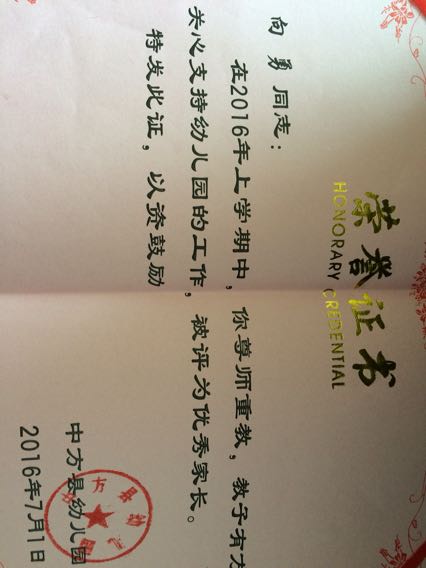 荣誉证书
HONORARY CREDENTIAL
向 勇 同志：
在2016年上学期中，你尊师重教，教子有方
关心支持幼儿园的工作，被评为优秀家长。
特发此证，以资鼓励
中方县幼儿园
2016年7月1日